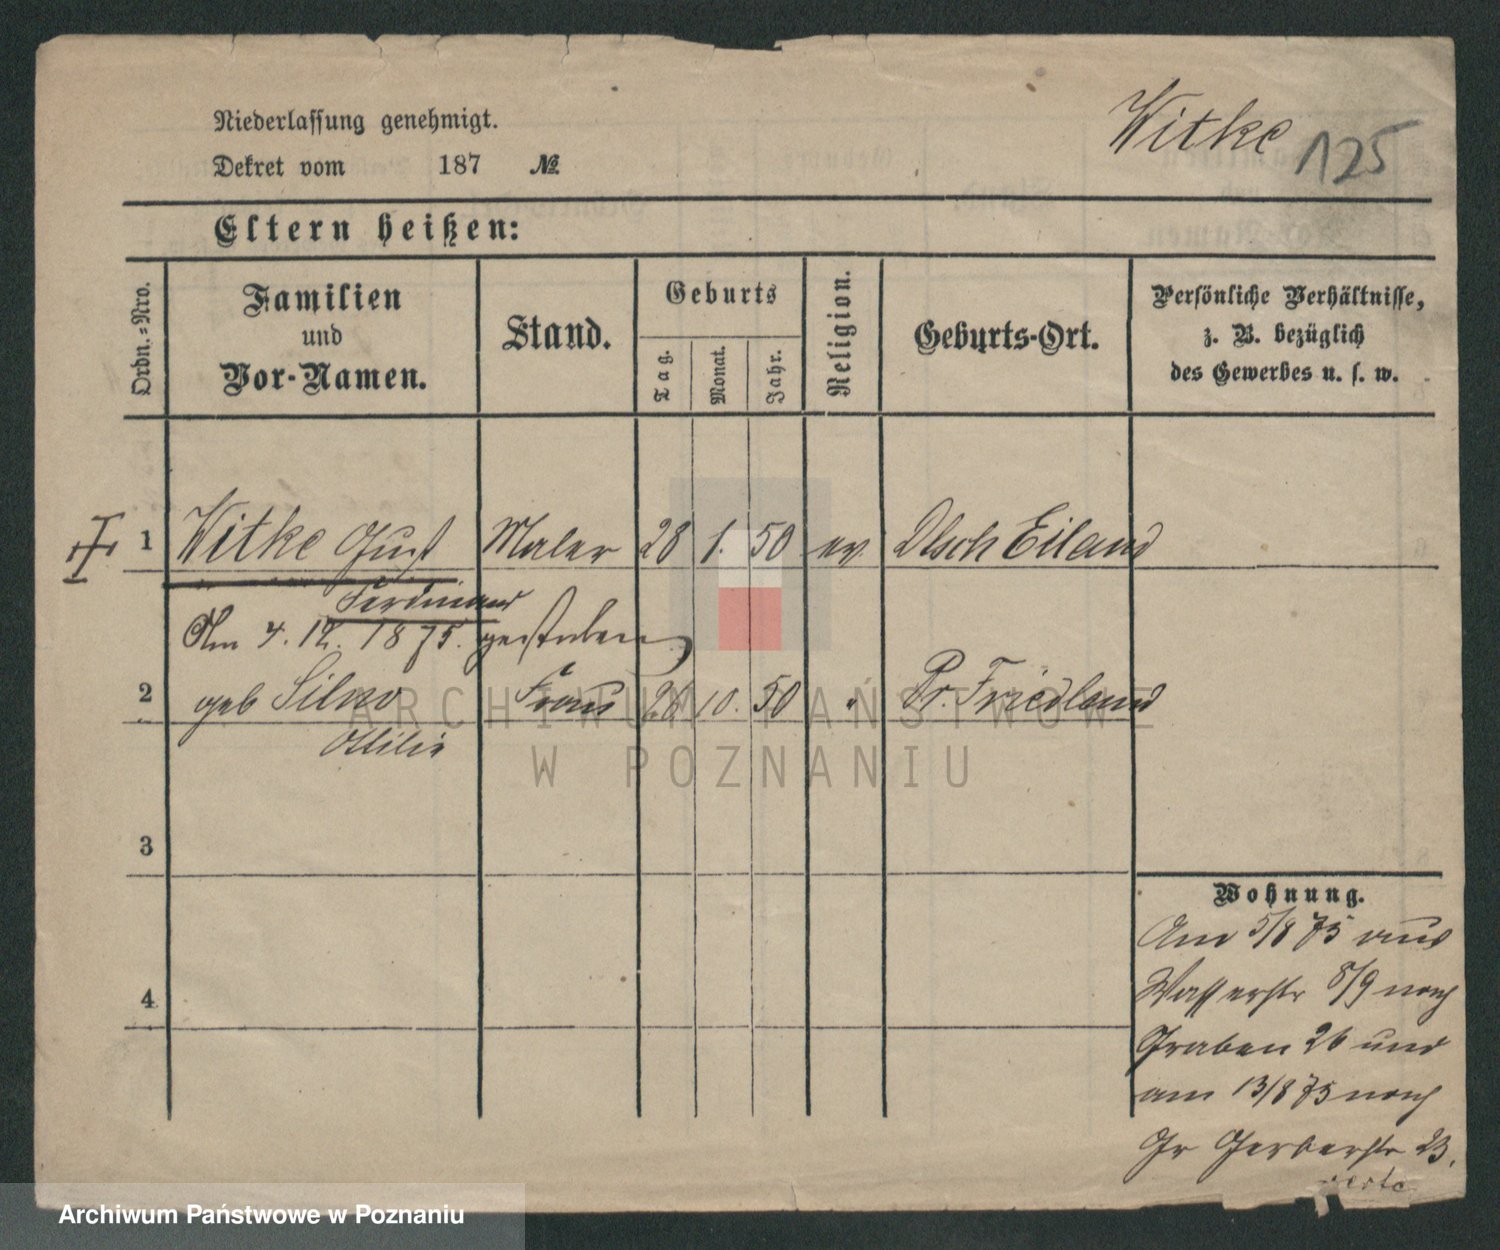 Niederlassung genehmigt.
Witke 125
Dekret vom 187 №
Eltern heißen:
Ordn.=Nro.
Familien
und
Vor-Namen.
Stand.
Geburts
Tag.
Monat.
Jahr.
Religion.
Geburts-Ort.
Persönliche Verhältnisse,
z. B. bezüglich
des Gewerbes u. s. w.
1 Witke Gust Maler 28 1. 50 ev. Dtsch Eiland
Ferdinand
Am 4. 12. 1875. gestorben
2 geb Silno Frau 26 10. 50 " Pr. Friedland
Ottilie
3
4
Wohnung.
Am 5/8 75 aus
Wasserstr 8/9 nach
Graben 26 und
am 13/8 75 nach
Gr Gerberstr 23.
ARCHIWUM PAŃSTWOWE
W POZNANIU
Archiwum Państwowe w Poznaniu